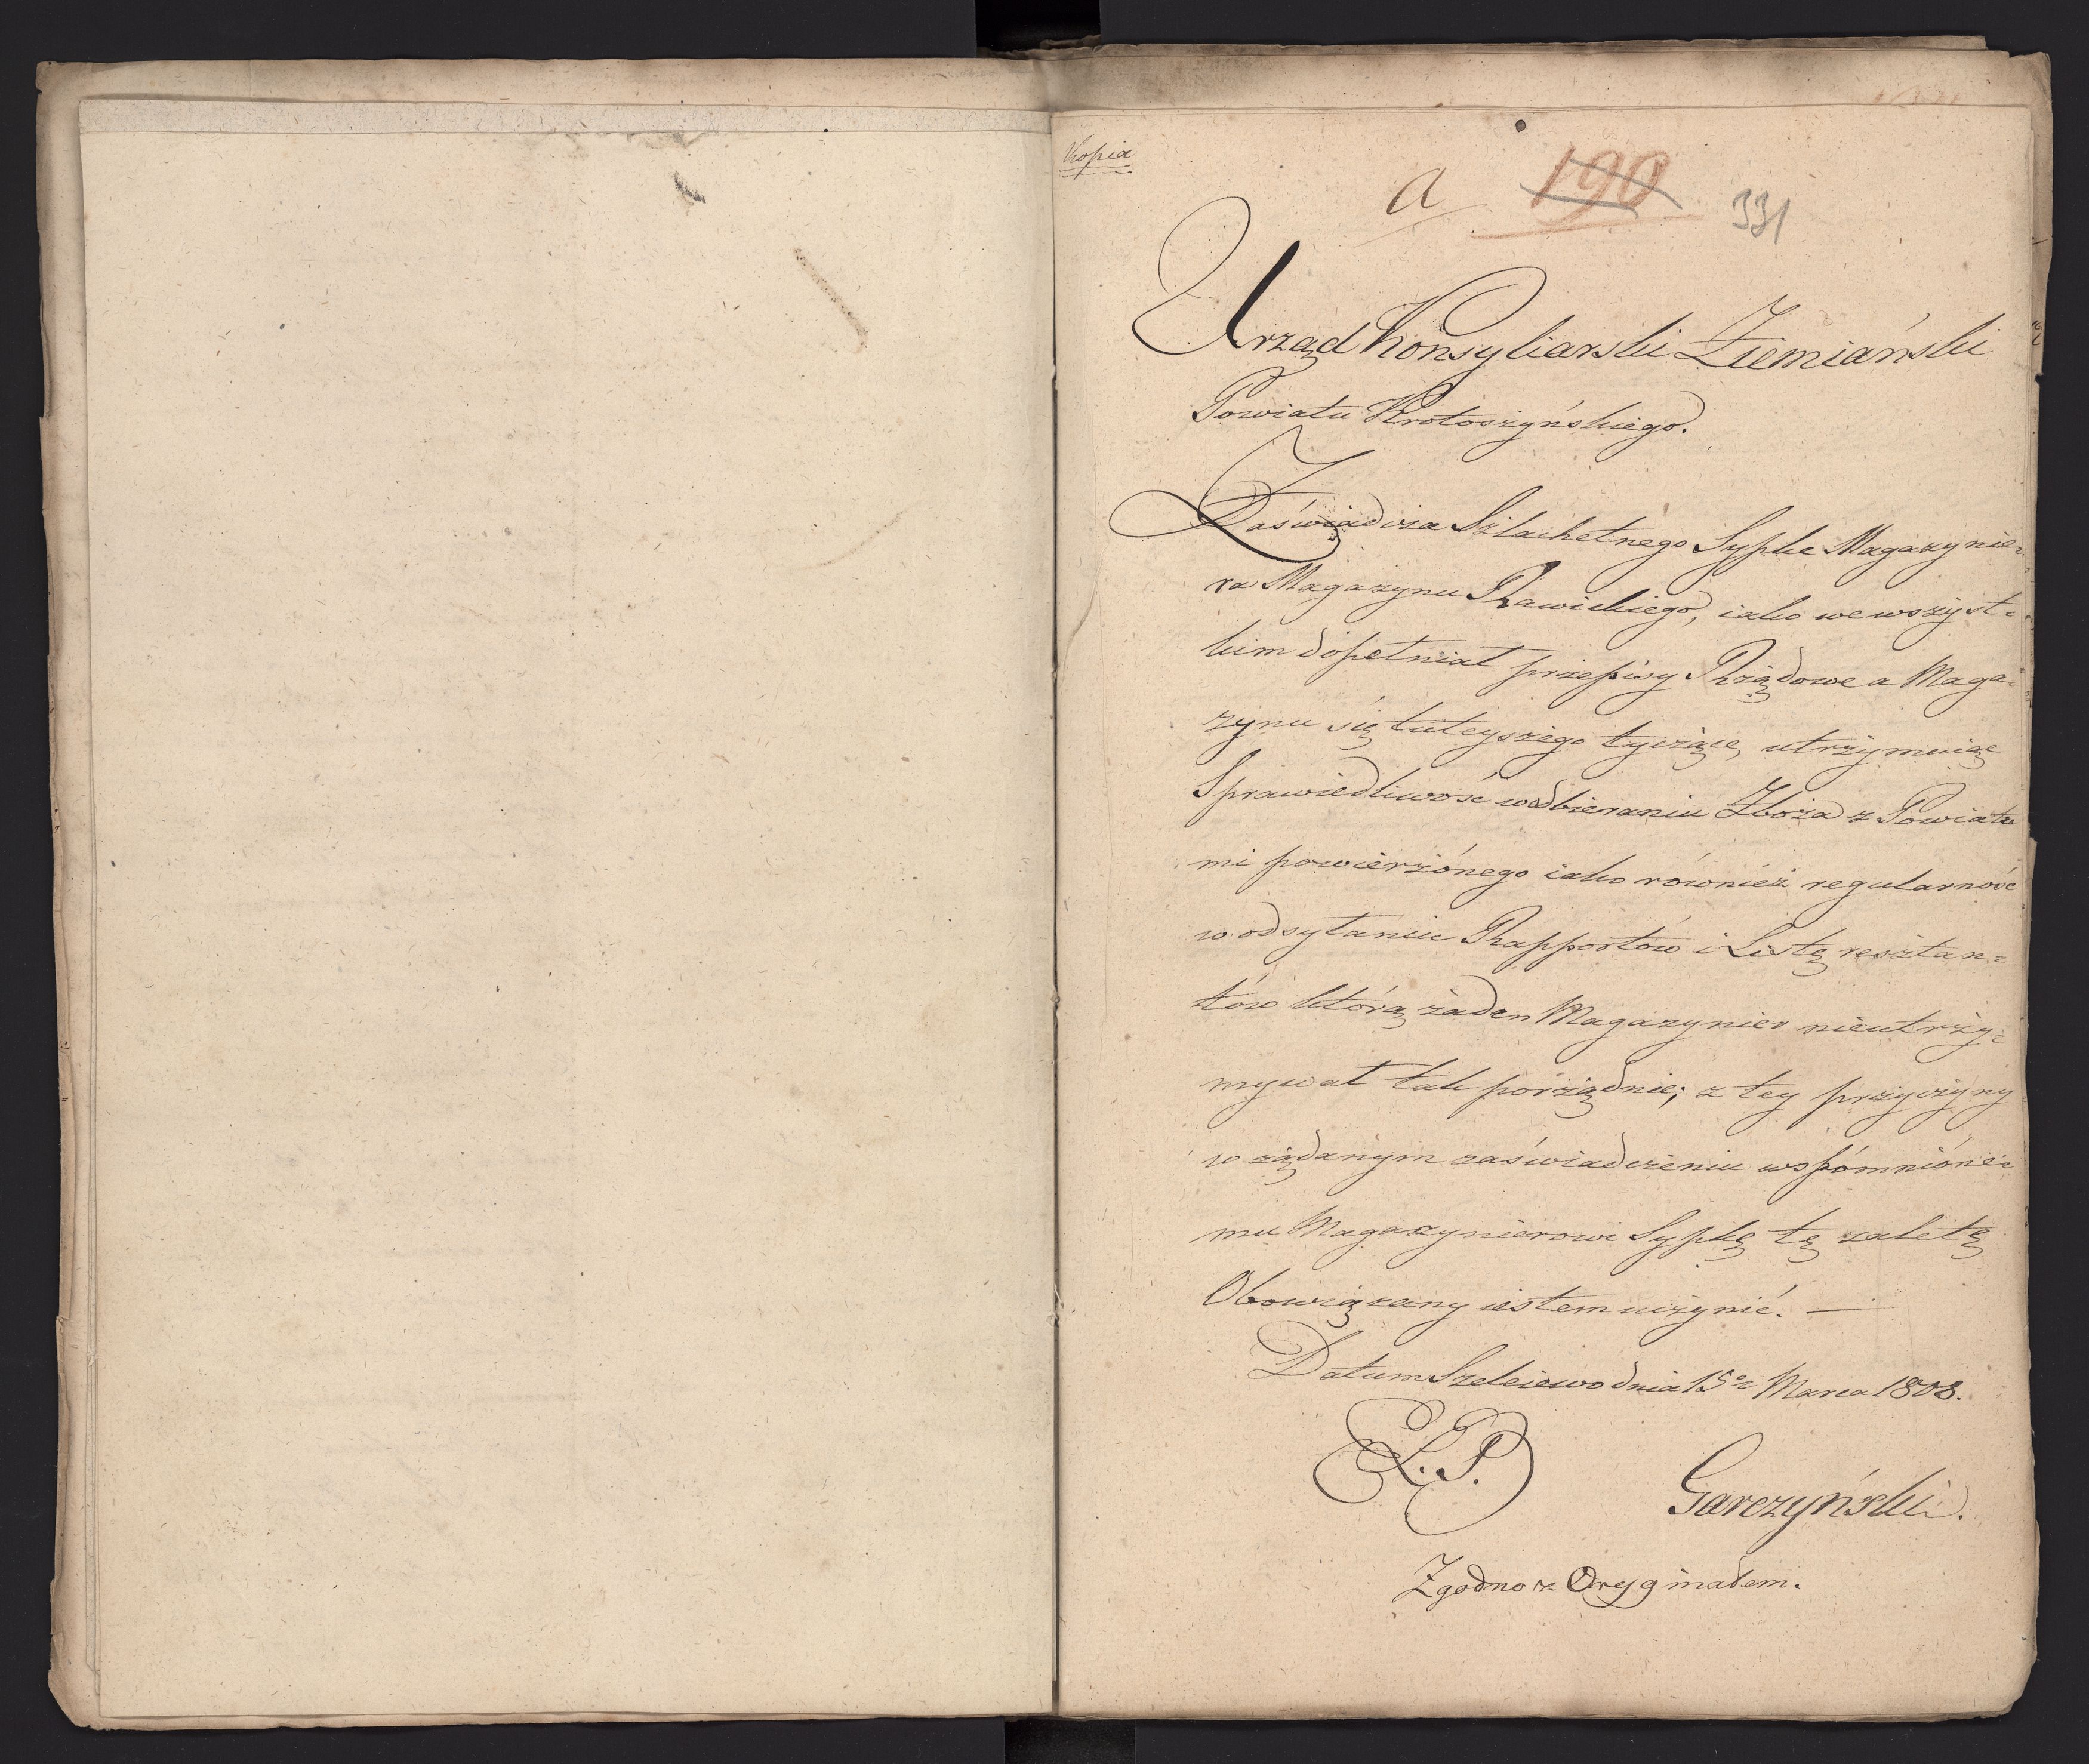 Kopia
a 190 331
Urząd Konsyliarski Ziemiański
Powiatu Krotoszyńskiego.
Zaświadcza Szlachetnego Sypke Magazynie=
ra Magazynu Rawickiego, iako wewszyst=
kim dopełniał przepisy Rządowe a Maga=
zynu się tuteyszego tyczące, utrzymuiąc
Sprawiedliwość wodbieraniu Zboża z Powiatu
mi powierzónego iako również regularność
w odsyłaniu Rapportów i Listę resztan=
tów którą żaden Magazynier nieutrzy=
mywał tak porządnie; z tey przyczyny
w żądanym zaświadczeniu wspómnióne=
mu Magazynierowi Sypkę tę zaletę
Obowiązany iestem uczynić. —
Datum Szeleiewo dnia 15ᵉᵒ Marca 1808.
L. S.
Garczyński.
Zgodno z Oryginałem.